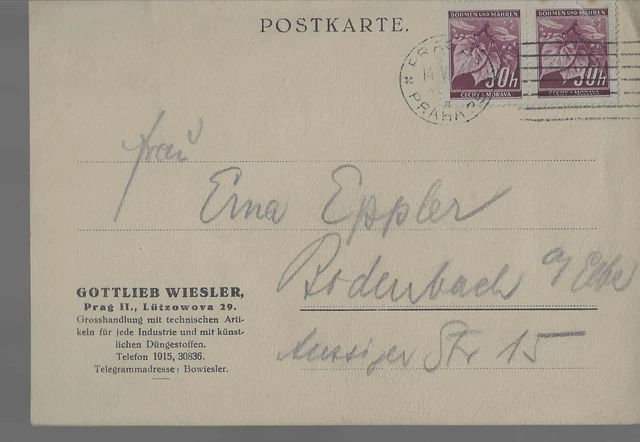 POSTKARTE.
BÖHMEN UND MÄHREN
30h
ČECHY A MORAVA
BÖHMEN UND MÄHREN
30h
ČECHY A MORAVA
PRAHA
Frau
Erna Eppler
Bodenbach a/ Elbe
Aussiger Str 15
GOTTLIEB WIESLER,
Prag II., Lützowova 29.
Grosshandlung mit technischen Arti-
keln für jede Industrie und mit künst-
lichen Düngestoffen.
Telefon 1915, 30836.
Telegrammadresse: Bowiesler.